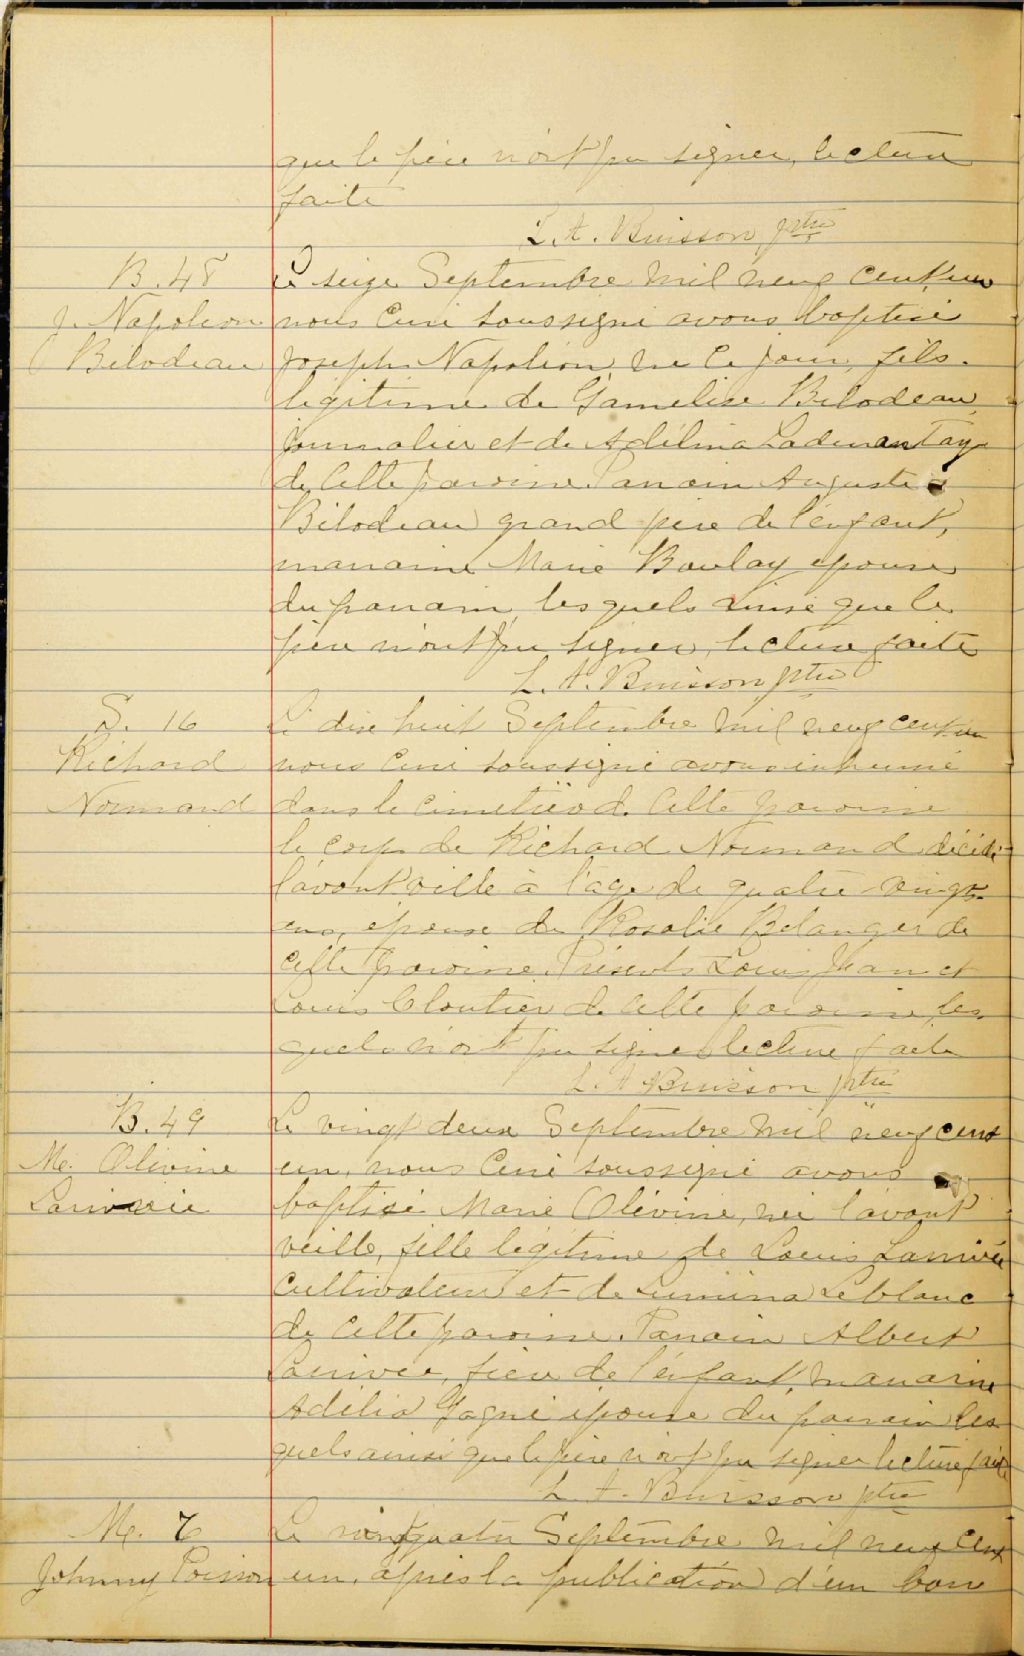 que le père n'ont pu signer, lecture
faite
L. A. Buisson ptre
B. 48
J. Napoleon
Bilodeau
Le seize Septembre mil neuf cent un
nous Curé soussigné avons baptisé
Joseph Napoléon né ce jour, fils
légitime de Gamelise Bilodeau
journalier et de Adélina Ladurantaye
de cette paroisse. Parrain Auguste
Bilodeau grand père de l'enfant,
marraine Marie Boulay épouse
du parrain, les quels ainsi que le
père n'ont pu signer, lecture faite
L. A. Buisson ptre
S. 16
Richard
Normand
Le dix huit Septembre mil neuf cent un
nous Curé soussigné avons inhumé
dans le cimetière de cette paroisse
le corps de Richard Normand décédé
l'avant veille à l'age de quatre-vingt
ans, époux de Rosalie Belanger de
cette paroisse. Présents Louis Jean et
Louis Cloutier de cette paroisse les
quels n'ont pu signer lecture faite
L. A Buisson ptre
B. 49
Me. Olivine
Larivée
Le vingt deux Septembre mil neuf cent
un, nous Curé soussigné avons
baptisé Marie Olévine, née l'avant
veille, fille légitime de Louis Larrivée
Cultivateur et de Lumina Leblanc
de cette paroisse. Parrain Albert
Larrivée, frère de l'enfant, marraine
Adélia Gagné épouse du parrain les
quels ainsi que le père n'ont pu signer lecture faite
L. A. Buisson ptre
M. 7
Johnny Poisson
Le vingt quatre Septembre mil neuf cent
un, après la publication d'un banc